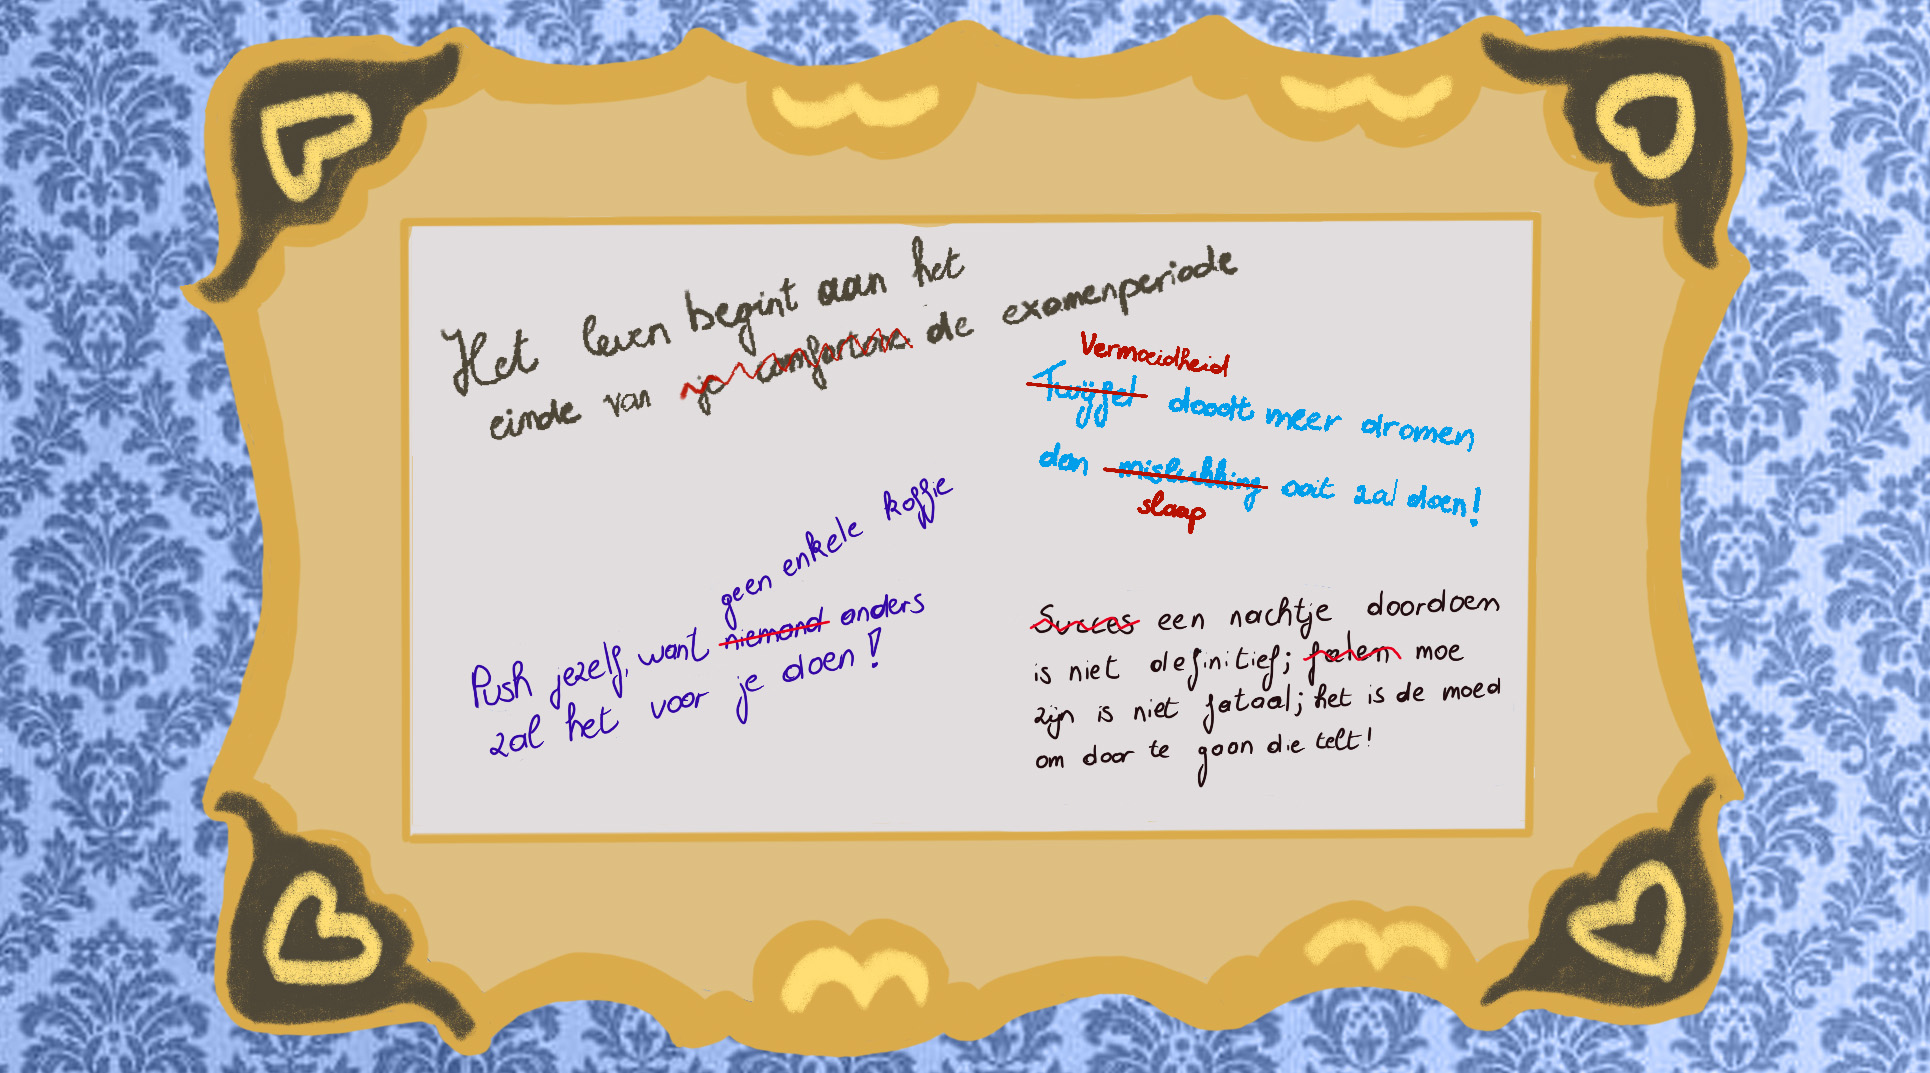 Het leven begint aan het
einde van je comfortzone de examenperiode
Vermoeidheid
Twijfel doodt meer dromen
dan mislukking ooit zal doen!
slaap
geen enkele koffie
Push jezelf, want niemand anders
zal het voor je doen!
Succes een nachtje doordoen
is niet definitief; falen moe
zijn is niet fataal; het is de moed
om door te gaan die telt!